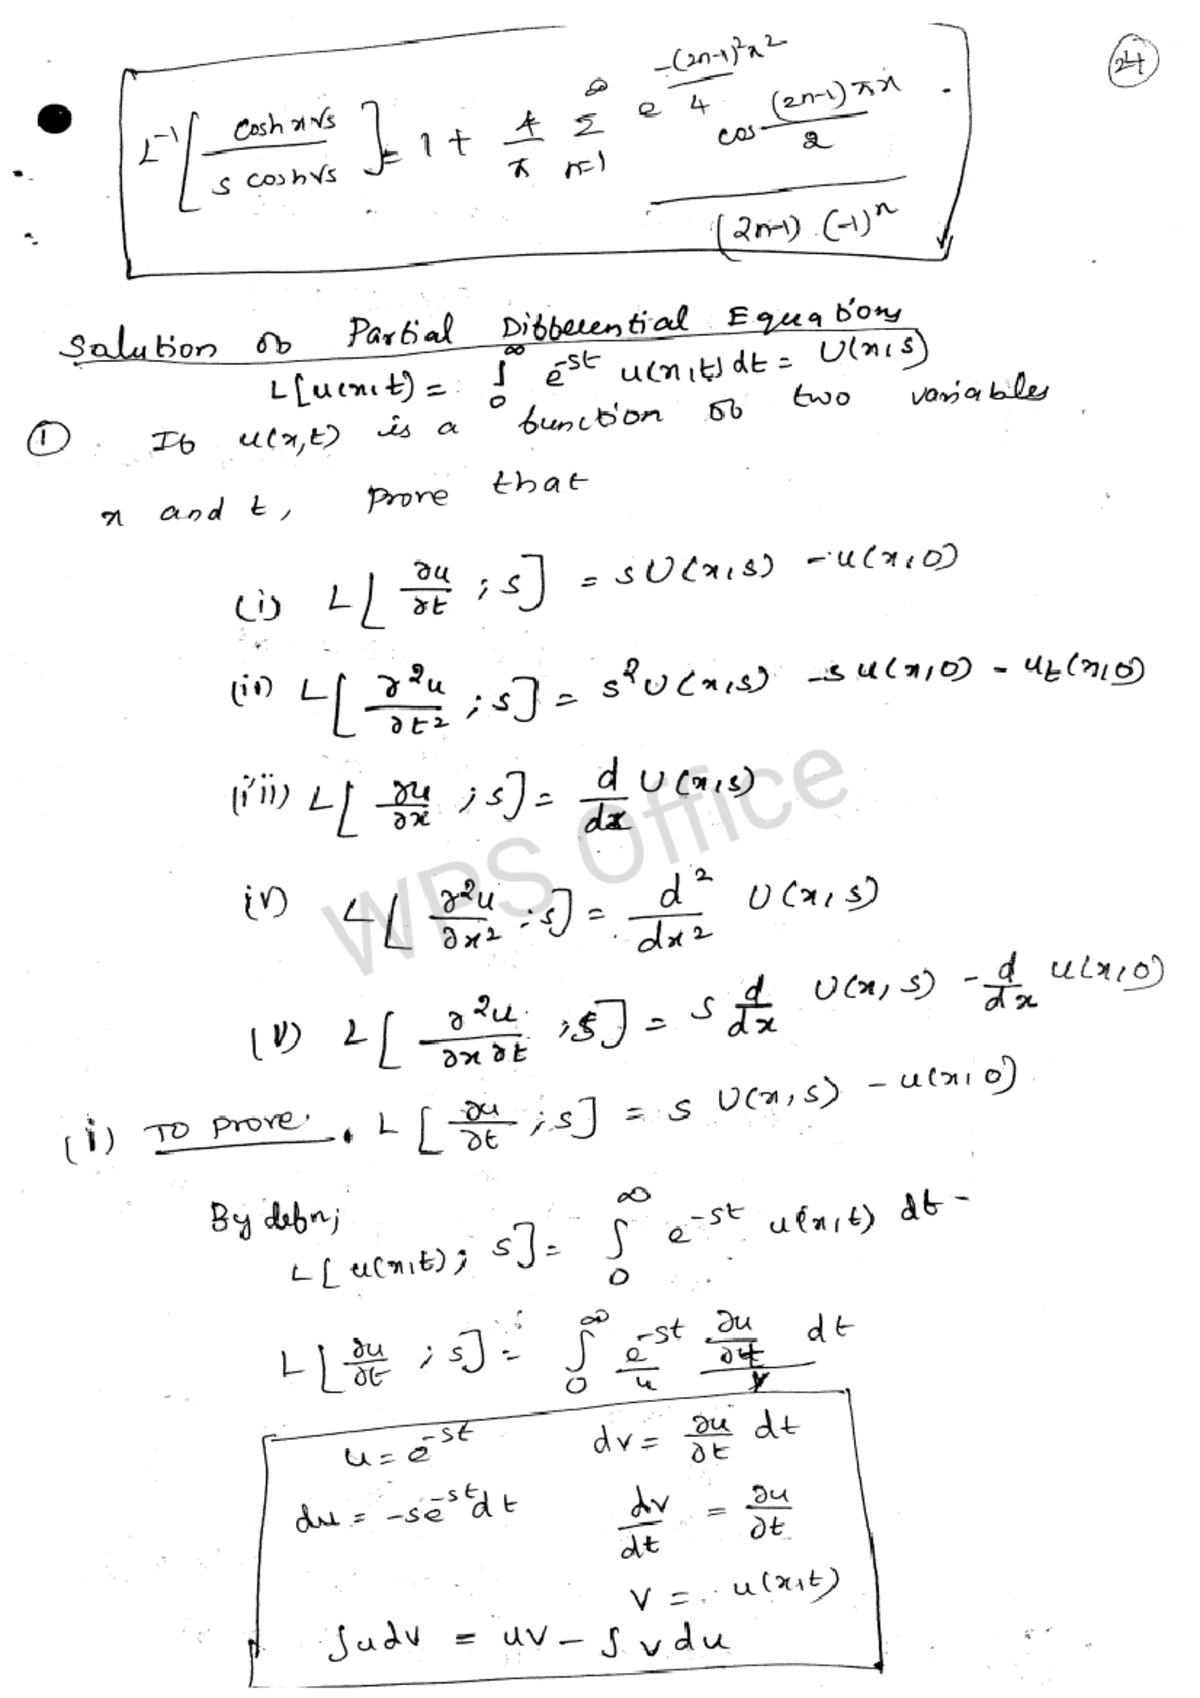 24
L⁻¹[cosh x√s / s cosh√s] = 1 + 4/π ∞Σn=1 e^(-(2n-1)²π²/4) cos (2n-1)πx/2 / (2n-1) (-1)ⁿ
Solution of Partial Differential Equations
L[u(x,t)] = ∫₀^∞ e^-st u(x,t) dt = U(x,s)
① If u(x,t) is a function of two variables
x and t, prove that
(i) L[∂u/∂t ; s] = sU(x,s) - u(x,0)
(ii) L[∂²u/∂t² ; s] = s²U(x,s) - su(x,0) - uₜ(x,0)
(iii) L[∂u/∂x ; s] = d/dx U(x,s)
iv) L[∂²u/∂x² ; s] = d²/dx² U(x,s)
(v) L[∂²u/∂x∂t ; s] = s d/dx U(x,s) - d/dx u(x,0)
(i) To prove. L[∂u/∂t ; s] = s U(x,s) - u(x,0)
By defn;
L[u(x,t) ; s] = ∫₀^∞ e^-st u(x,t) dt
L[∂u/∂t ; s] = ∫₀^∞ e^-st ∂u/∂t dt
u v
u = e^-st dv = ∂u/∂t dt
du = -se^-st dt dv/dt = ∂u/∂t
v = u(x,t)
∫udv = uv - ∫vdu
WPS Office